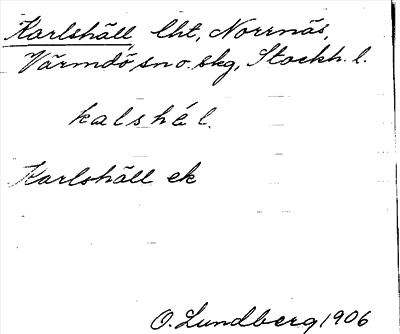 Karlshäll, lht, Norrnäs,
Värmdö sn o. skg, Stockh. l.
kalshé l.
Karlshäll ek
O. Lundberg 1906